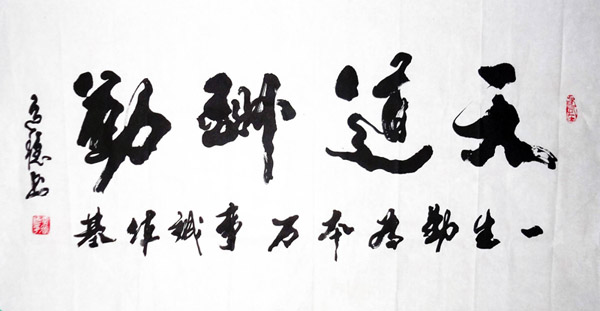 天道酬勤
一生勤為本万事誠作基